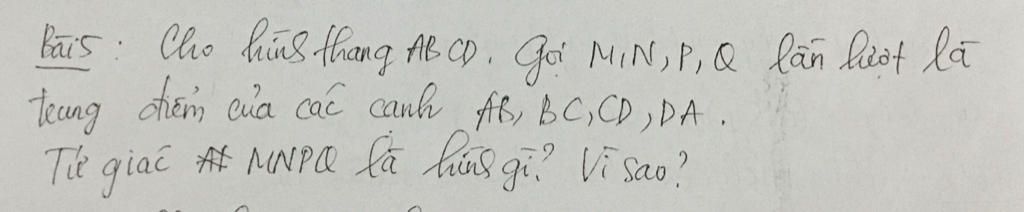 Bài 5 : Cho hình thang ABCD. Gọi M, N, P, Q lần lượt là
trung điểm của các cạnh AB, BC, CD, DA.
Tứ giác MNPQ là hình gì? Vì sao?